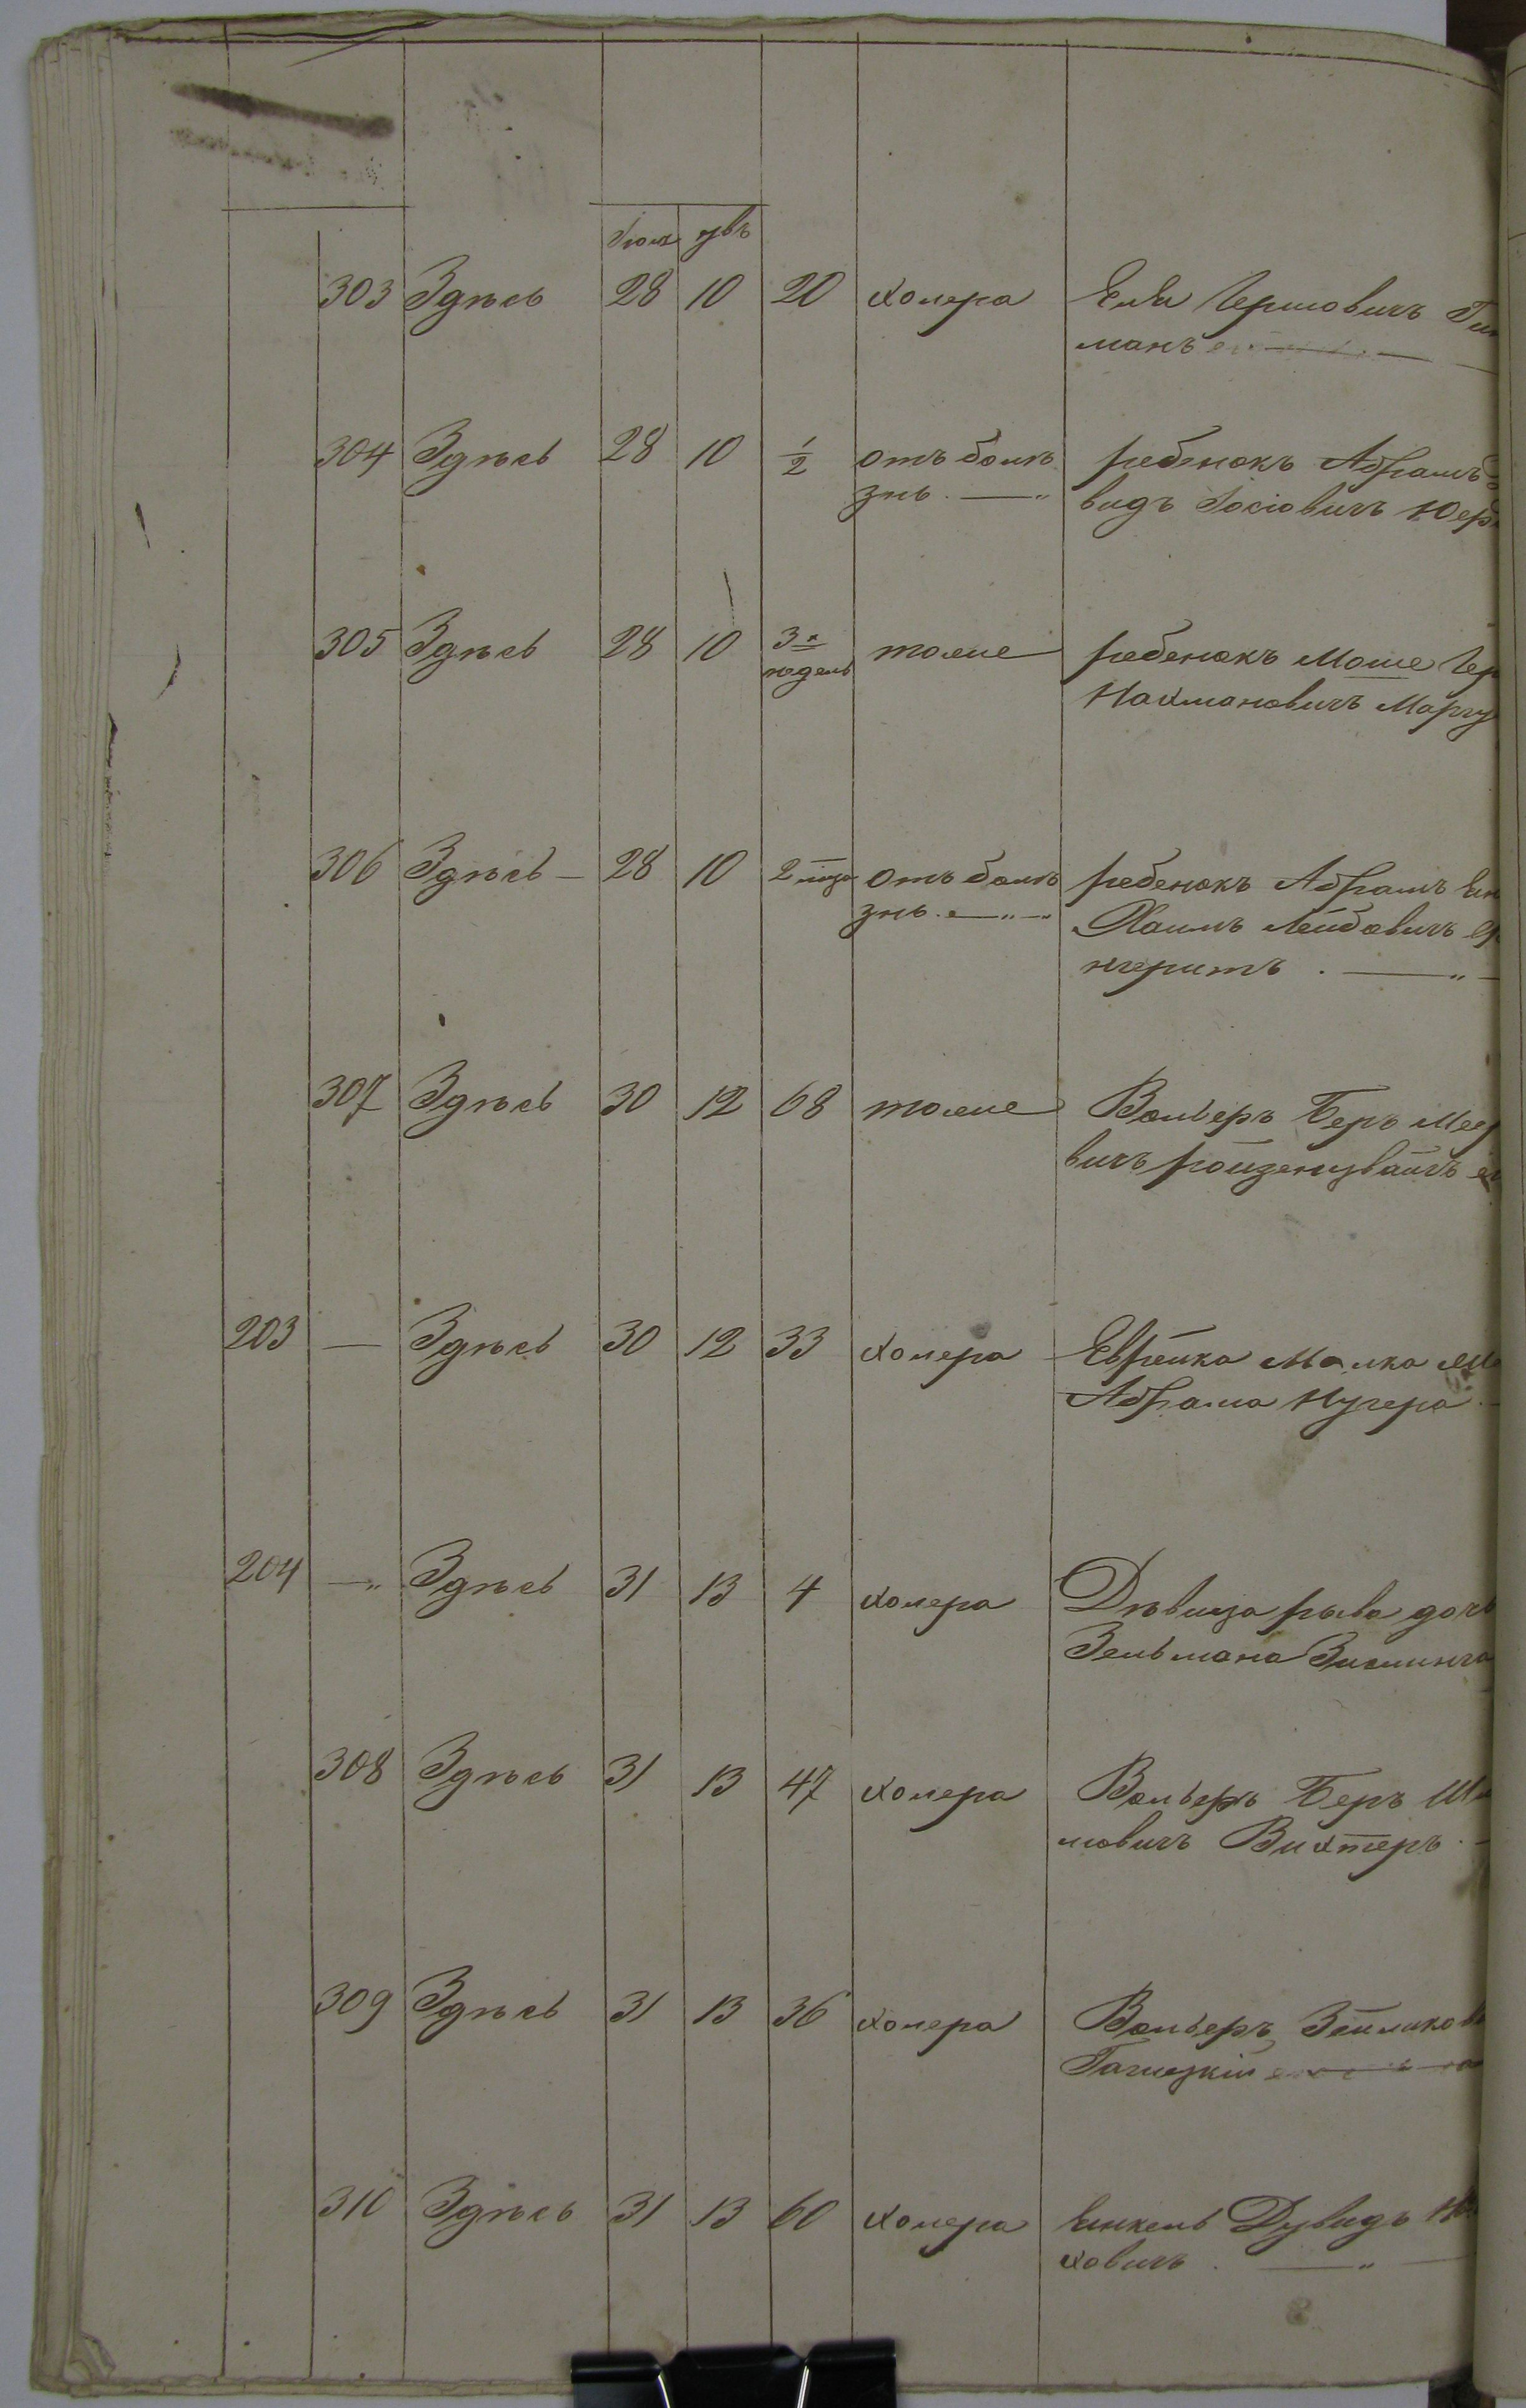 Іюля увъ
303 Здѣсь 28 10 20 холера Еля Гершовичъ
манъ
304 Здѣсь 28 10 1/2 отъ болѣ ребенокъ Абрамъ
знь. видъ Іосіовичъ Юер
305 Здѣсь 28 10 3х тоже ребенокъ Моше Гер
недель Нахмановичъ Маргу
306 Здѣсь 28 10 2 отъ болѣ ребенокъ Абрамъ
знь. Хаимъ Лейбовичъ
нгритъ.
307 Здѣсь 30 12 68 тоже Вольеръ Беръ Мее
вичъ ройзенцвайгъ
203 — Здѣсь 30 12 33 холера Еврейка Малка
Абрама Нугера
204 — Здѣсь 31 13 4 холера Дѣвица рыва дочь
Зельмана
308 Здѣсь 31 13 47 холера Вольеръ Беръ
мовичъ Вихтеръ.
309 Здѣсь 31 13 36 холера Вольеръ
310 Здѣсь 31 13 60 холера Еинкель Дувидъ
ховичъ.